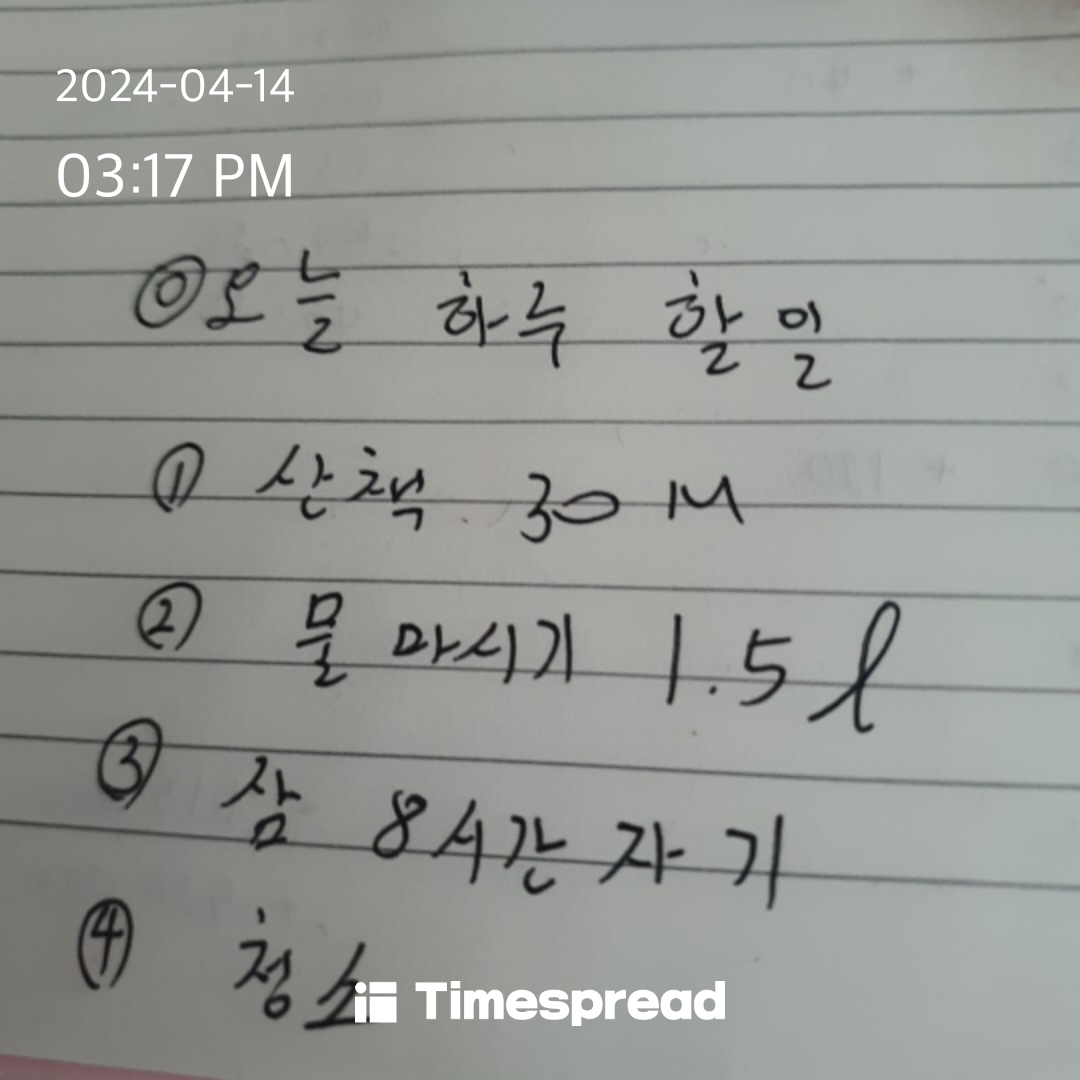 2024-04-14
03:17 PM
◎오늘 하루 할일
① 산책 30 M
② 물 마시기 1.5 l
③ 잠 8시간 자기
④ 청소
Timespread